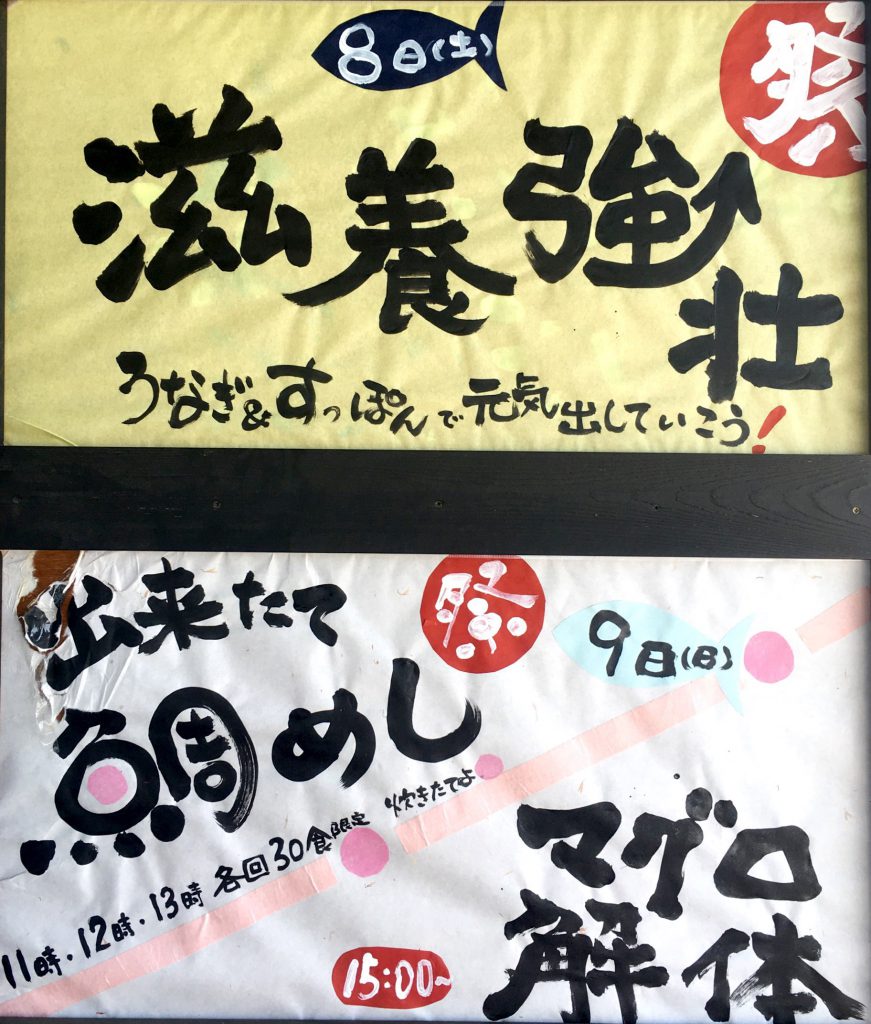 8日(土)
祭
滋養強壮
うなぎ&すっぽんで元気出していこう!
出来たて
祭
9日(日)
鯛めし
炊きたてよ
11時・12時・13時 各回30食限定
マグロ
解体
15:00~